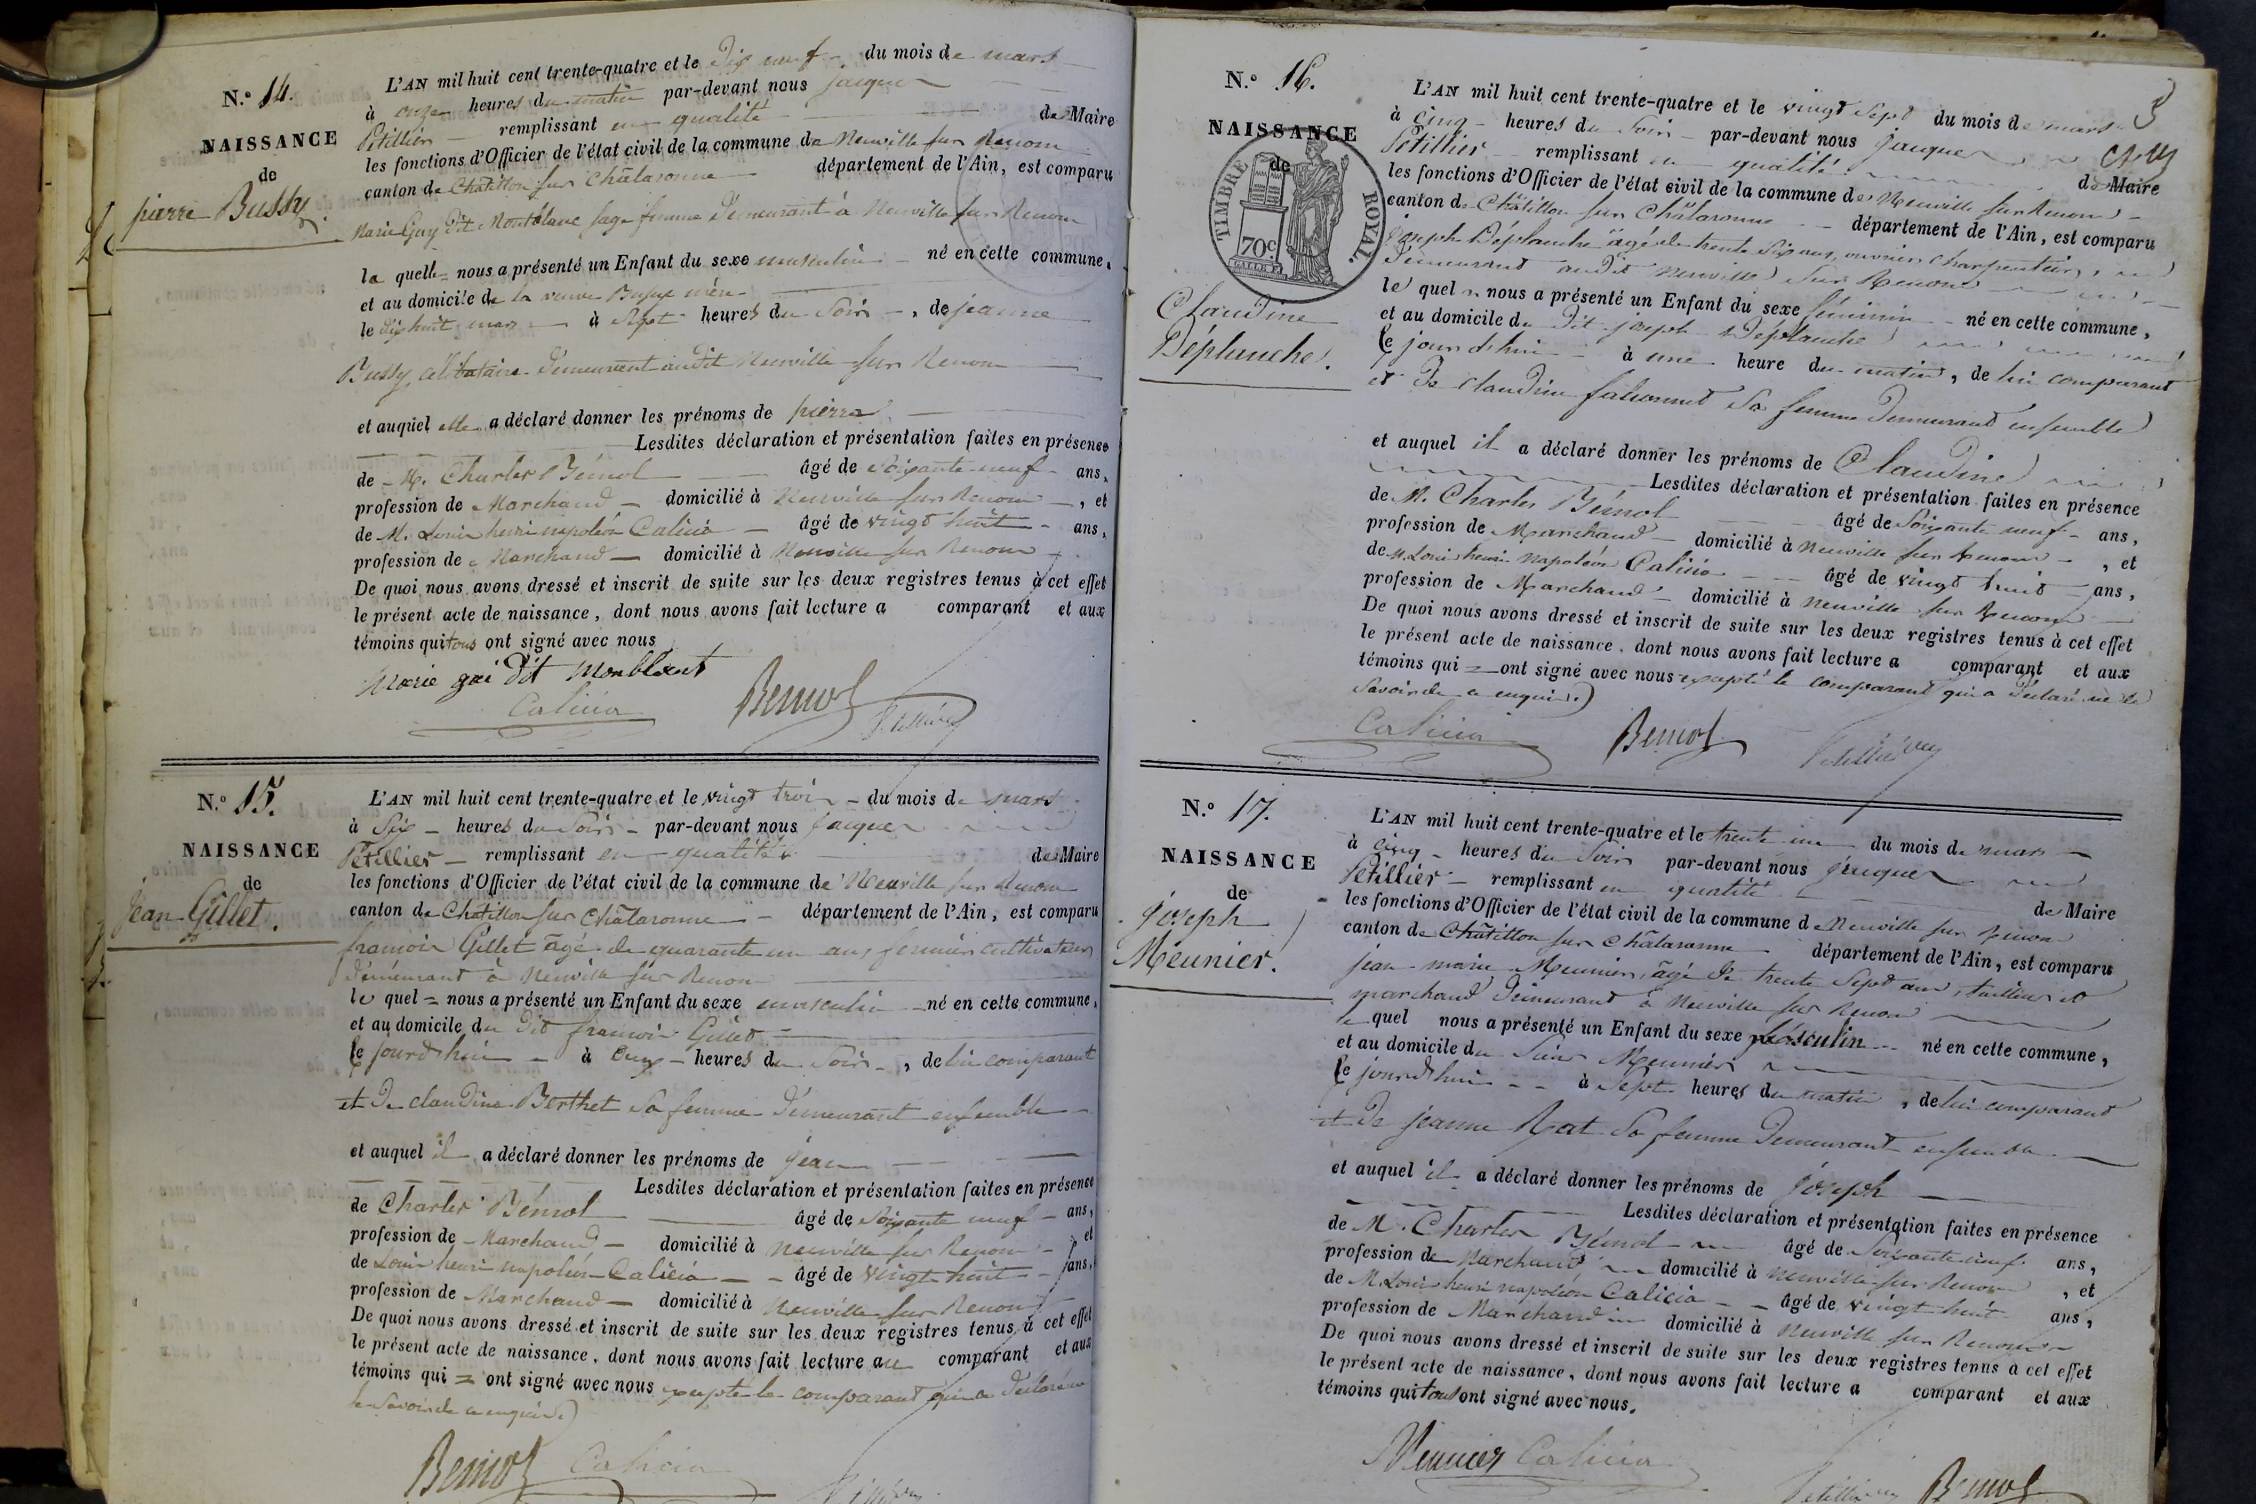 N.º 14.
NAISSANCE
de
pierre Bussy.
L'AN mil huit cent trente-quatre et le Dix neuf du mois de mars
à onze heures du matin par-devant nous jacques
Pétillier remplissant en qualité de Maire
les fonctions d'Officier de l'état civil de la commune de Neuville sur Renom
canton de Châtillon sur Châlaronne département de l'Ain, est comparu
Marie Guy dit Montblanc sage femme Demeurant à Neuville sur Renom
la quelle nous a présenté un Enfant du sexe masculin né en cette commune,
et au domicile de la veuve Bussy mère
le dix huit mars à Sept heures du Soir, de jeanne
Bussy, célibataire Demeurant audit Neuville sur Renom
et auquel elle a déclaré donner les prénoms de pierre
Lesdites déclaration et présentation faites en présence
de M. Charles Bémol âgé de Soixante neuf ans,
profession de Marchand domicilié à Neuville sur Renom, et
de M. Louis henri napoléon Calicia âgé de vingt huit ans,
profession de Marchand domicilié à Neuville sur Renom
De quoi nous avons dressé et inscrit de suite sur les deux registres tenus à cet effet
le présent acte de naissance, dont nous avons fait lecture a comparant et aux
témoins qui tous ont signé avec nous
Marie gui dit monblant
Calicia Bemol
N.º 15.
NAISSANCE
de
jean Gillet.
L'AN mil huit cent trente-quatre et le vingt trois du mois de mars
à Six heures du Soir par-devant nous jacques
Pétillier remplissant en qualité de Maire
les fonctions d'Officier de l'état civil de la commune de Neuville sur Renom
canton de Châtillon sur Châlaronne département de l'Ain, est comparu
francois Gillet âgé de quarante un ans fermier cultivateur
Demeurant à Neuville sur Renom
le quel = nous a présenté un Enfant du sexe masculin né en cette commune,
et au domicile du dit francois Gillet
le jourd'hui à heures du Soir, de lui comparant
et De claudine Berthet Sa femme Demeurant ensemble
et auquel il a déclaré donner les prénoms de jean
Lesdites déclaration et présentation faites en présence
de Charles Bémol âgé de Soixante neuf ans,
profession de Marchand domicilié à Neuville sur Renom, et
de Louis henri napoléon Calicia âgé de vingt huit ans,
profession de Marchand domicilié à Neuville sur Renom
De quoi nous avons dressé et inscrit de suite sur les deux registres tenus à cet effet
le présent acte de naissance, dont nous avons fait lecture au comparant et aux
témoins qui = ont signé avec nous excepté le comparant qui a déclaré ne
le Savoir de ce enquis.)
Bemol Calicia
N.º 16.
NAISSANCE
de
TIMBRE ROYAL.
70c.
Claudine
Déplanche.
L'AN mil huit cent trente-quatre et le vingt Sept du mois de mars
à cinq heures du Soir par-devant nous jacques
Pétillier remplissant en qualité de Maire
les fonctions d'Officier de l'état civil de la commune de Neuville sur Renom
canton de Châtillon sur Châlaronne département de l'Ain, est comparu
joseph Déplanche âgé de trente Six ans, ouvrier charpentier,
Demeurant audit Neuville Sur Renom
le quel nous a présenté un Enfant du sexe féminin né en cette commune,
et au domicile du Dit joseph Déplanche
le jourd'hui à une heure du matin, de lui comparant
et De claudine Sa femme Demeurant ensemble
et auquel il a déclaré donner les prénoms de Claudine
Lesdites déclaration et présentation faites en présence
de M. Charles Bémol âgé de Soixante neuf ans,
profession de Marchand domicilié à Neuville sur Renom, et
de M. Louis henri napoléon Calicia âgé de vingt huit ans,
profession de Marchand domicilié à Neuville sur Renom
De quoi nous avons dressé et inscrit de suite sur les deux registres tenus à cet effet
le présent acte de naissance, dont nous avons fait lecture a comparant et aux
témoins qui = ont signé avec nous excepté le comparant qui a déclaré ne le
Savoir de ce enquis.)
Calicia Bemol Pétillier
N.º 17.
NAISSANCE
de
joseph
Meunier.
L'AN mil huit cent trente-quatre et le trente un du mois de mars
à cinq heures du Soir par-devant nous jacques
Pétillier remplissant en qualité de Maire
les fonctions d'Officier de l'état civil de la commune de Neuville sur Renom
canton de Châtillon sur Châlaronne département de l'Ain, est comparu
jean marie Meunier, âgé De trente Sept ans, tailleur et
marchand Demeurant à Neuville sur Renom
le quel nous a présenté un Enfant du sexe masculin né en cette commune,
et au domicile du Sieur Meunier
le jourd'hui à Sept heures du matin, de lui comparant
et De jeanne Rat Sa femme Demeurant ensemble
et auquel il a déclaré donner les prénoms de joseph
Lesdites déclaration et présentation faites en présence
de M. Charles Bémol âgé de Soixante neuf ans,
profession de Marchand domicilié à Neuville sur Renom, et
de M. Louis henri napoléon Calicia âgé de vingt huit ans,
profession de Marchand domicilié à Neuville sur Renom
De quoi nous avons dressé et inscrit de suite sur les deux registres tenus à cet effet
le présent acte de naissance, dont nous avons fait lecture a comparant et aux
témoins qui tous ont signé avec nous.
Meunier Calicia
Bemol